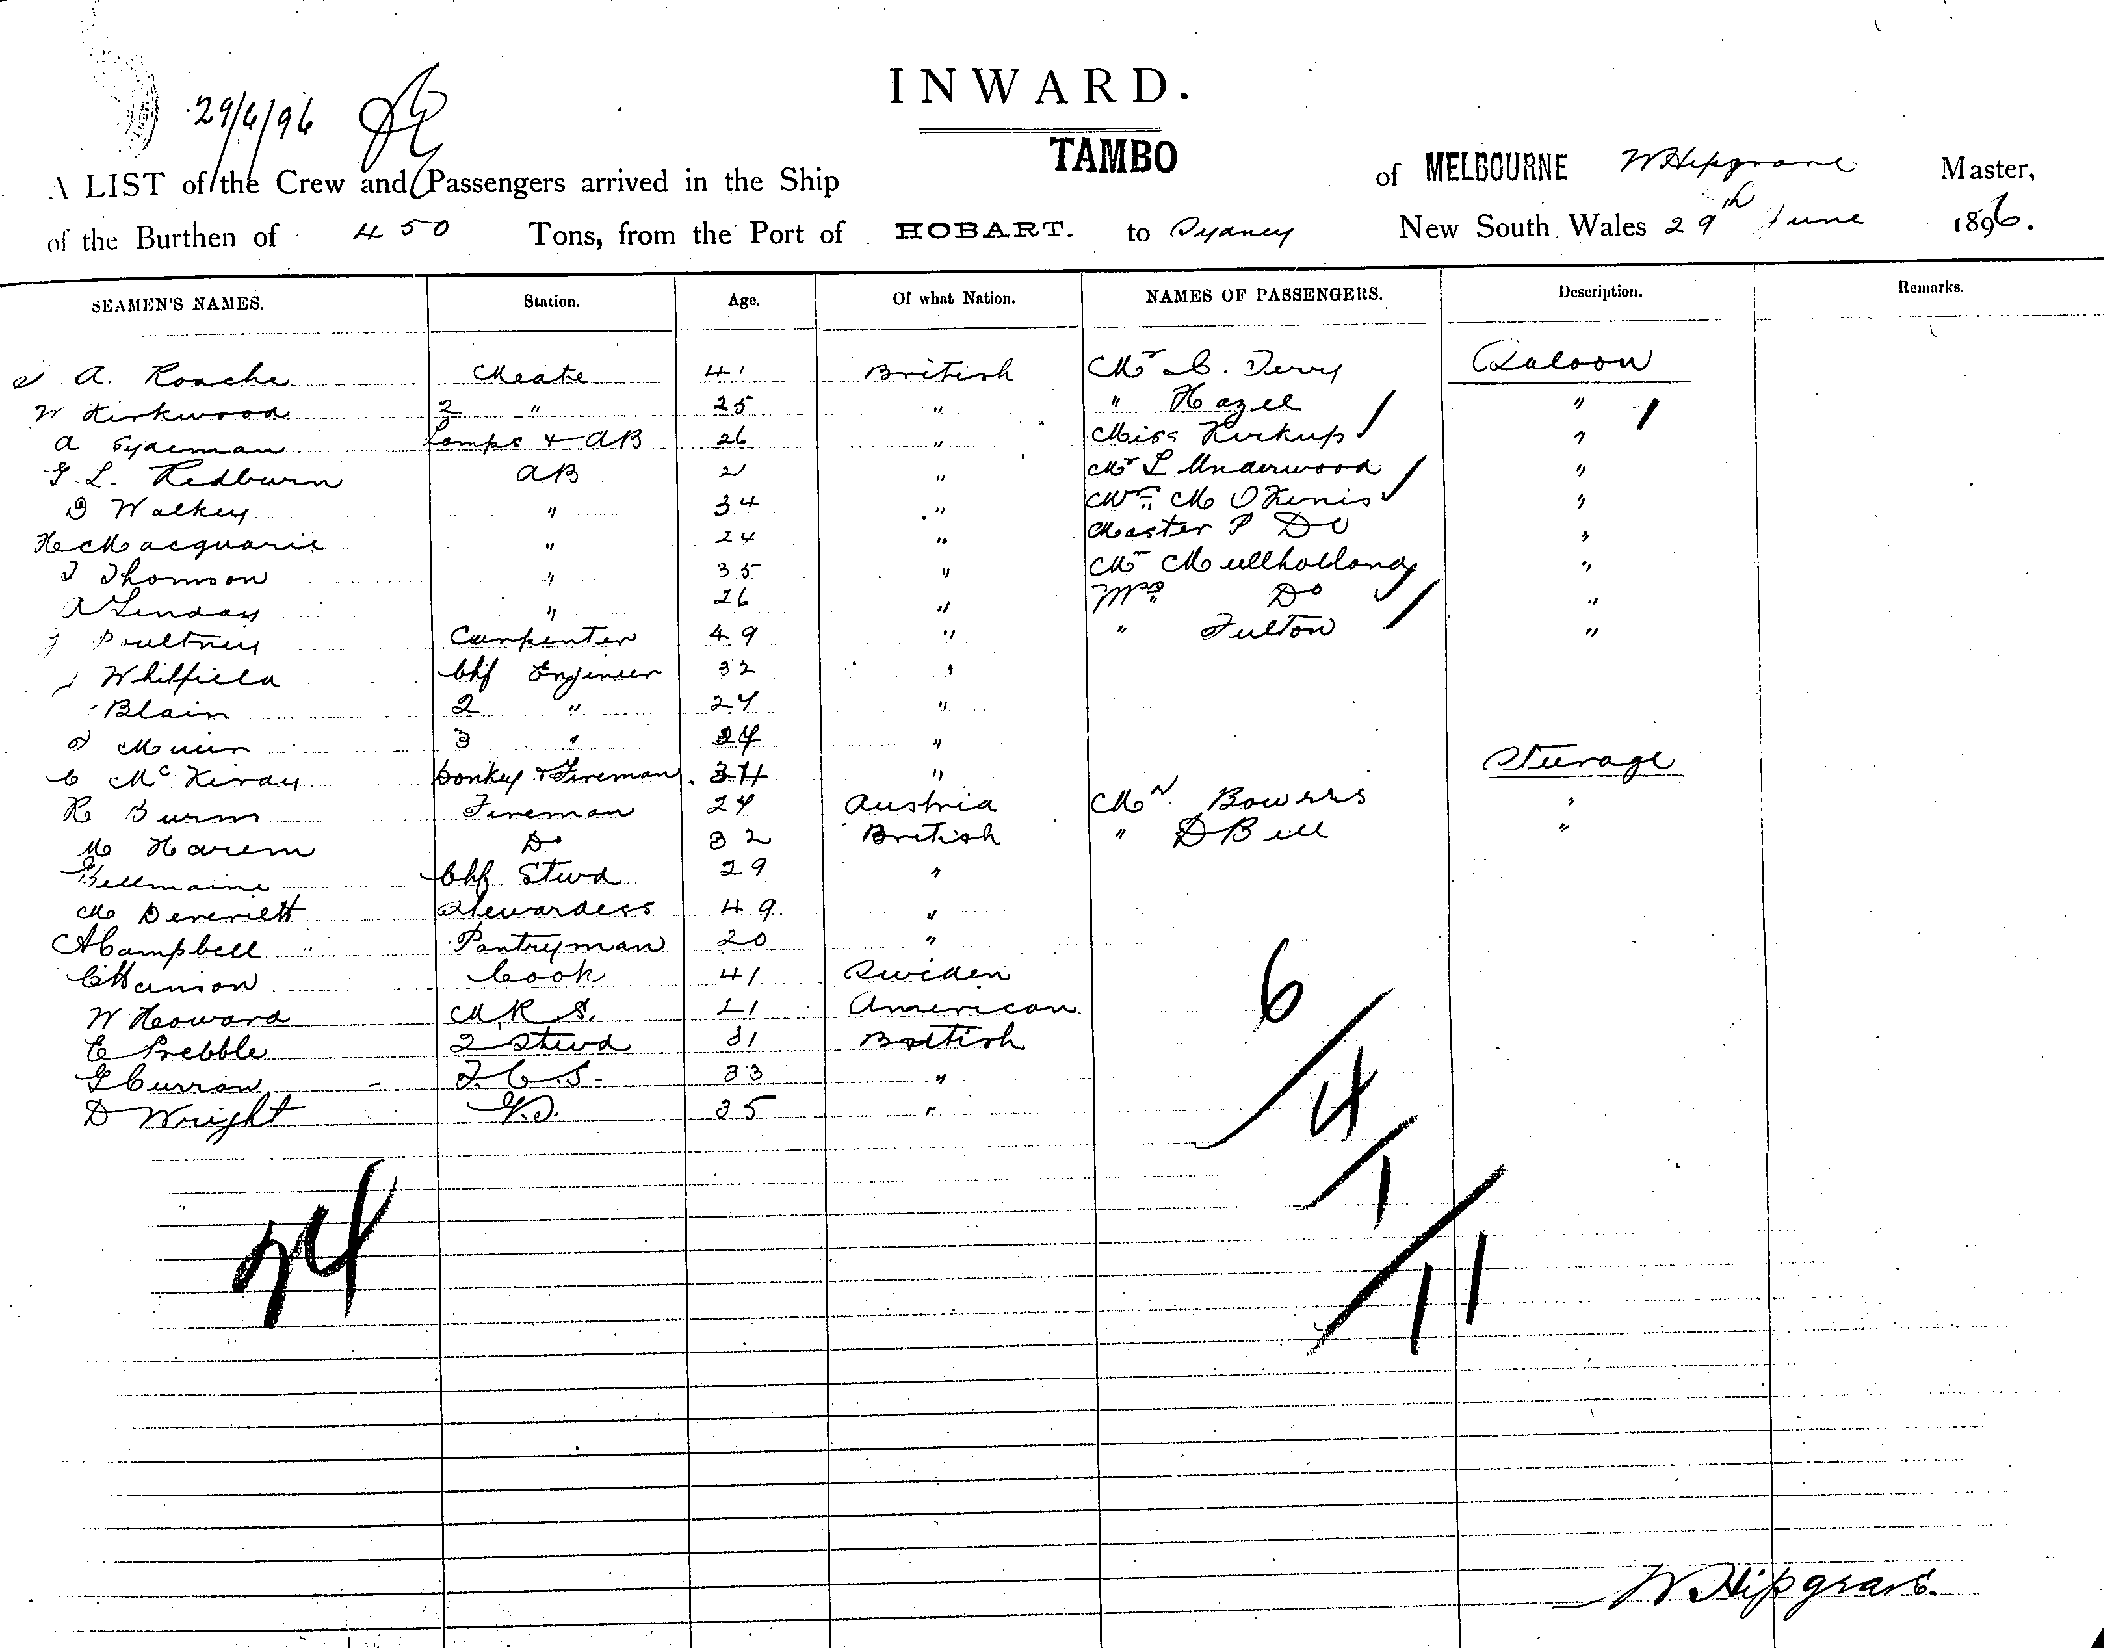 INWARD.
29/6/96
TAMBO
A LIST of the Crew and Passengers arrived in the Ship of MELBOURNE W Hipgrave Master,
of the Burthen of 450 Tons, from the Port of HOBART. to Sydney New South Wales 29th June 1896.
SEAMEN'S NAMES. Station. Age. Of what Nation. NAMES OF PASSENGERS. Description. Remarks.
A. Roache Mate 41 British Mr C. Terry Saloon
W Kirkwood 2 " 25 " " Hazel "
A Sydeman Lamps & AB 26 " Miss Kirkup "
L. Redburn AB 2 " Mr L Underwood "
D Walkey " 34 " M "
H Macquarie " 24 " Master P Do "
T Thomson " 35 " Mr Mullholland "
Linday " 26 " Mrs Do "
Poultney Carpenter 49 " " Fulton "
J Whitfield Chf Engineer 32 "
Blain 2 " 24 "
Muir 3 " 24 "
C McKirdy Donkey & Fireman 34 " Steerage
R Burns Fireman 24 Austria Mr Bowers "
M Harem Do 32 British " D Bell "
Bellmaine Chf Stwd 29 "
M Deverett Stewardess 49 "
A Campbell Pantryman 20 "
C Hanson Cook 41 Sweden
W Howard M.R.S. 21 American
E Prebble 2 Stwd 31 British
G Curran F.C.S. 33 "
D Wright 35 "
6/4/1/11
24
W Hipgrave.